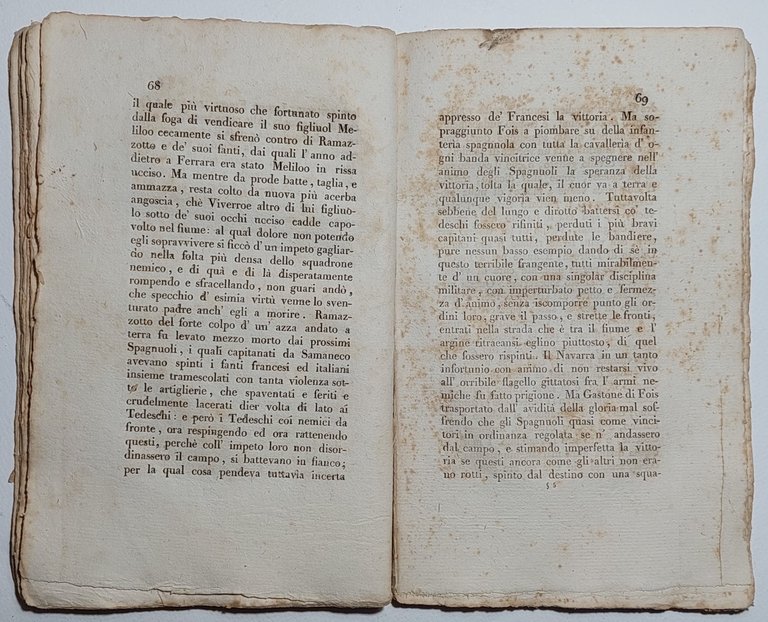 68
il quale più virtuoso che fortunato spinto
dalla foga di vendicare il suo figliuol Me-
liloo cecamente si sfrenò contro di Ramaz-
zotto e de' suoi fanti, dai quali l'anno ad-
dietro a Ferrara era stato Meliloo in rissa
ucciso. Ma mentre da prode batte, taglia, e
ammazza, resta colto da nuova più acerba
angoscia, chè Viverroe altro di lui figliuo-
lo sotto de' suoi occhi ucciso cadde capo-
volto nel fiume: al qual dolore non potendo
egli sopravvivere si ficcò d'un impeto gagliar-
do nella folta più densa dello squadrone
nemico, e di quà e di là disperatamente
rompendo e sfracellando, non guari andò,
che specchio d'esimia virtù venne lo sven-
turato padre anch'egli a morire. Ramaz-
zotto del forte colpo d'un'azza andato a
terra fu levato mezzo morto dai prossimi
Spagnuoli, i quali capitanati da Samaneco
avevano spinti i fanti francesi ed italiani
insieme tramescolati con tanta violenza sot-
to le artiglierie, che spaventati e feriti e
crudelmente lacerati dier volta di lato ai
Tedeschi: e però i Tedeschi coi nemici da
fronte, ora respingendo ed ora rattenendo
questi, perchè coll'impeto loro non disor-
dinassero il campo, si battevano in fianco;
per la qual cosa pendeva tuttavia incerta
69
appresso de' Francesi la vittoria. Ma so-
praggiunto Fois a piombare su della infan-
teria spagnuola con tutta la cavalleria d'o-
gni banda vincitrice venne a spegnere nell'
animo degli Spagnuoli la speranza della
vittoria, tolta la quale, il cuor va a terra e
qualunque vigoria vien meno. Tuttavolta
sebbene del lungo e dirotto battersi co' te-
deschi fossero rifiniti, perduti i più bravi
capitani quasi tutti, perdute le bandiere,
pure nessun basso esempio dando di sè in
questo terribile frangente, tutti mirabilmen-
te d'un cuore, con una singolar disciplina
militare, con imperturbato petto e fermez-
za d'animo, senza iscomporre punto gli or-
dini loro, grave il passo, e strette le fronti,
entrati nella strada che è tra il fiume e l'
argine ritraeansi eglino piuttosto, di quel
che fossero rispinti. Il Navarra in un tanto
infortunio con animo di non restarsi vivo
all'orribile flagello gittatosi fra l'armi ne-
miche fu fatto prigione. Ma Gastone di Fois
trasportato dall'avidità della gloria mal sof-
frendo che gli Spagnuoli quasi come vinci-
tori in ordinanza regolata se n'andassero
dal campo, e stimando imperfetta la vitto-
ria se questi ancora come gli altri non era-
no rotti, spinto dal destino con una squa-